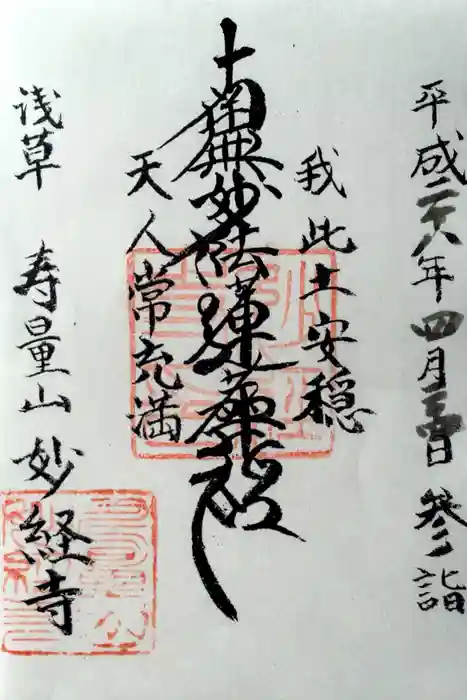 平成二十八年四月三日 参詣
我此土安穏
南無妙法蓮華経
天人常充満
浅草 寿量山 妙経寺